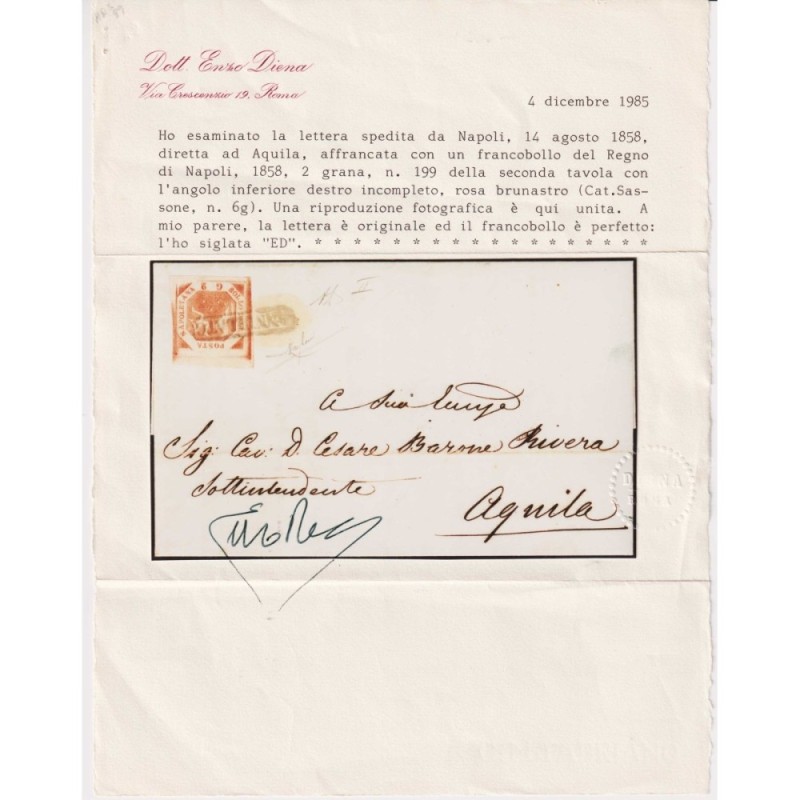 Dott. Enzo Diena
Via Crescenzio 19, Roma
4 dicembre 1985
Ho esaminato la lettera spedita da Napoli, 14 agosto 1858,
diretta ad Aquila, affrancata con un francobollo del Regno
di Napoli, 1858, 2 grana, n. 199 della seconda tavola con
l'angolo inferiore destro incompleto, rosa brunastro (Cat.Sas-
sone, n. 6g). Una riproduzione fotografica è qui unita. A
mio parere, la lettera è originale ed il francobollo è perfetto:
l'ho siglata "ED". * * * * * * * * * * * * * * * * * *
G 2
BOLLO DELLA
NAPOLETANA
POSTA
A Sua
Sig: Cav: D. Cesare Barone Rivera
Sottintendente
Aquila
DIENA
ROMA